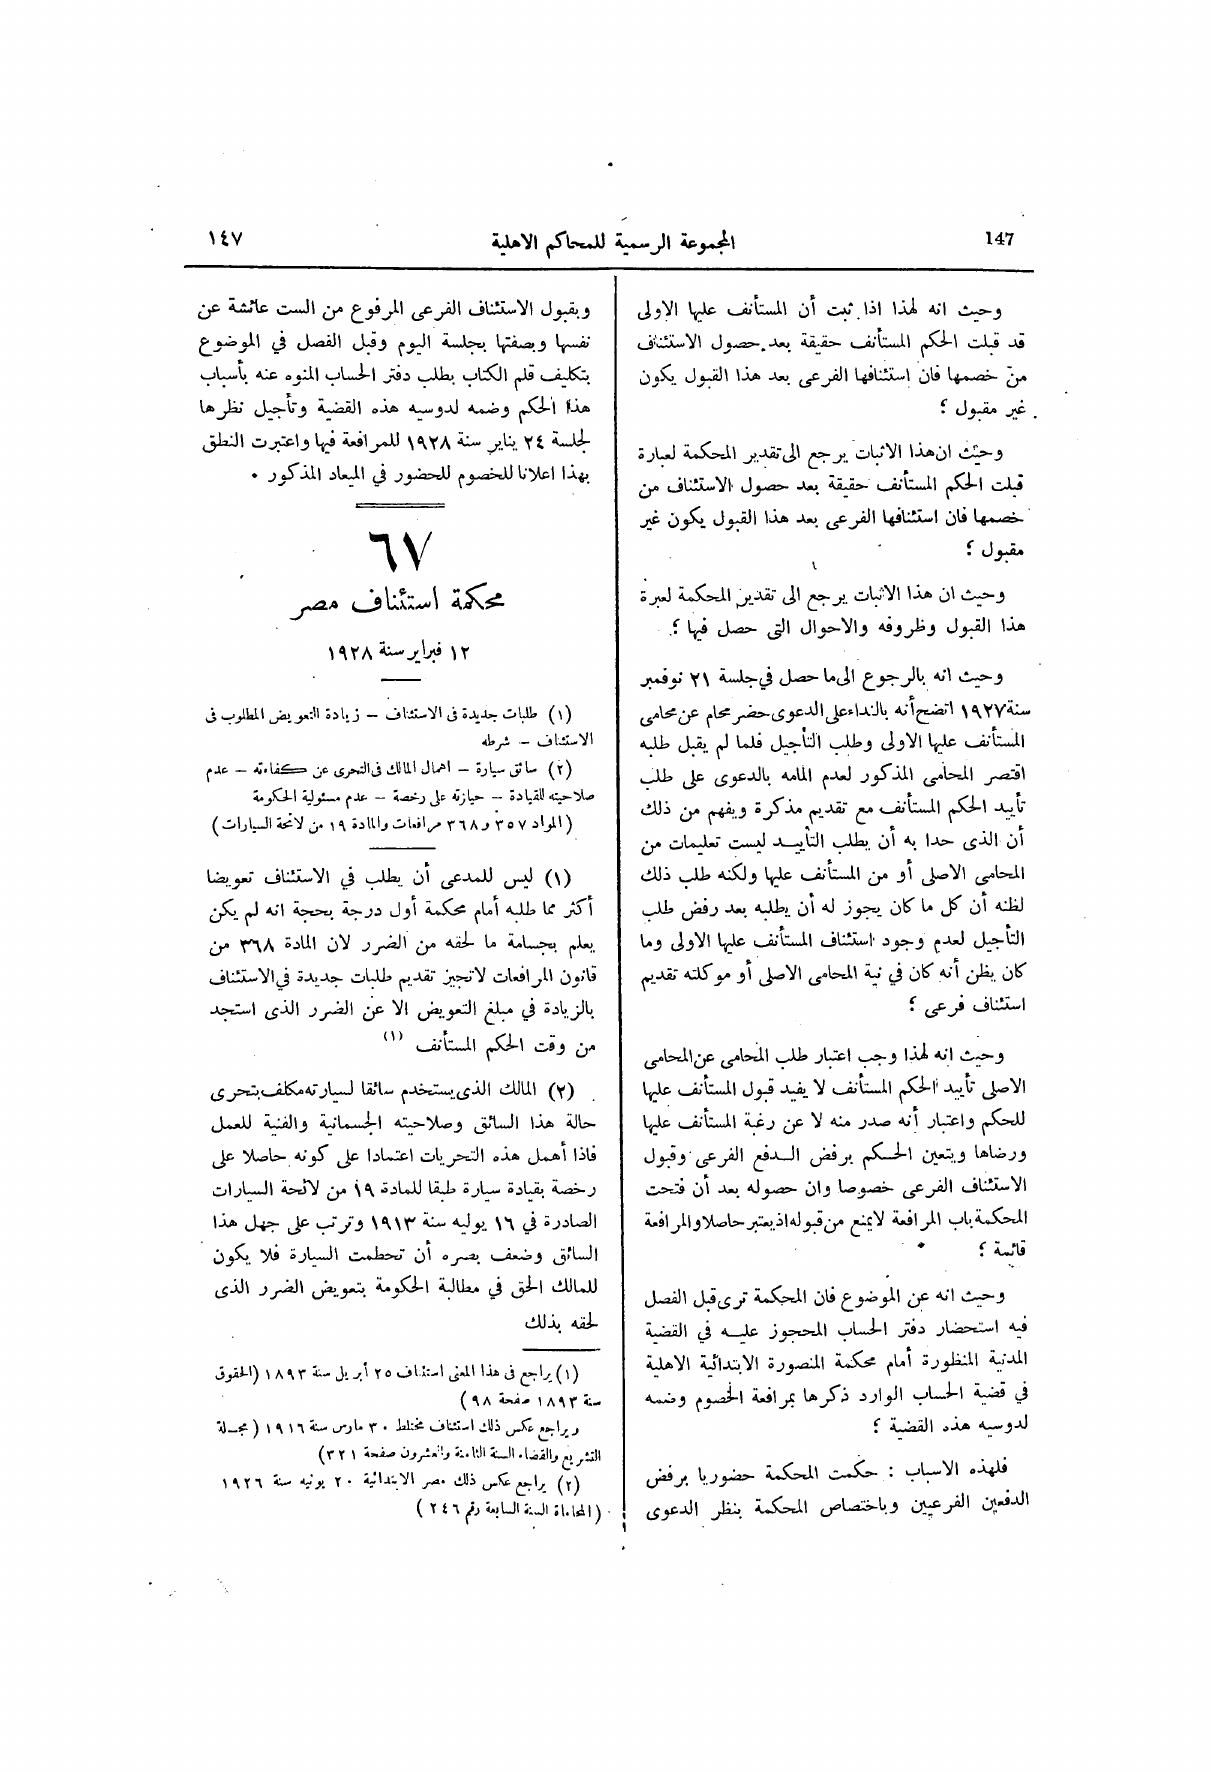 147
المجموعة الرسمية للمحاكم الاهلية
١٤٧
وحيث انه لهذا اذا ثبت أن المستأنف عليها الاولى
قد قبلت الحكم المستأنف حقيقة بعد حصول الاستئناف
من خصمها فان استئنافها الفرعى بعد هذا القبول يكون
غير مقبول ؟
وحيث ان هذا الاثبات يرجع الى تقدير المحكمة لعبارة
قبلت الحكم المستأنف حقيقة بعد حصول الاستئناف من
خصمها فان استئنافها الفرعى بعد هذا القبول يكون غير
مقبول ؟
وحيث ان هذا الاثبات يرجع الى تقدير المحكمة لعبرة
هذا القبول وظروفه والاحوال التى حصل فيها ؟
وحيث انه بالرجوع الى ما حصل في جلسة ٢١ نوفمبر
سنة ١٩٢٧ اتضح أنه بالنداء على الدعوى حضر محام عن محامى
المستأنف عليها الاولى وطلب التأجيل فلما لم يقبل طلبه
اقتصر المحامى المذكور لعدم المامه بالدعوى على طلب
تأييد الحكم المستأنف مع تقديم مذكرة ويفهم من ذلك
أن الذى حدا به أن يطلب التأييد ليست تعليمات من
المحامى الاصلى أو من المستأنف عليها ولكنه طلب ذلك
لظنه أن كل ما كان يجوز له أن يطلبه بعد رفض طلب
التأجيل لعدم وجود استئناف المستأنف عليها الاولى وما
كان يظن أنه كان في نية المحامى الاصلى أو موكلته تقديم
استئناف فرعى ؟
وحيث انه لهذا وجب اعتبار طلب المحامى عن المحامى
الاصلى تأييد الحكم المستأنف لا يفيد قبول المستأنف عليها
للحكم واعتبار أنه صدر منه لا عن رغبة المستأنف عليها
ورضاها ويتعين الحكم برفض الدفع الفرعى وقبول
الاستئناف الفرعى خصوصا وان حصوله بعد أن فتحت
المحكمة باب المرافعة لا يمنع من قبوله اذ يعتبر حاصلا والمرافعة
قائمة ؟
وحيث انه عن الموضوع فان المحكمة ترى قبل الفصل
فيه استحضار دفتر الحساب المحجوز عليه في القضية
المدنية المنظورة أمام محكمة المنصورة الابتدائية الاهلية
في قضية الحساب الوارد ذكرها بمرافعة الخصوم وضمه
لدوسيه هذه القضية ؟
فلهذه الاسباب : حكمت المحكمة حضوريا برفض
الدفعين الفرعيين وباختصاص المحكمة بنظر الدعوى
وبقبول الاستئناف الفرعى المرفوع من الست عائشة عن
نفسها وبصفتها بجلسة اليوم وقبل الفصل في الموضوع
بتكليف قلم الكتاب بطلب دفتر الحساب المنوه عنه بأسباب
هذا الحكم وضمه لدوسيه هذه القضية وتأجيل نظرها
لجلسة ٢٤ يناير سنة ١٩٢٨ للمرافعة فيها واعتبرت النطق
بهذا اعلانا للخصوم للحضور في الميعاد المذكور ٠
٦٧
محكمة استئناف مصر
١٢ فبراير سنة ١٩٢٨
(١) طلبات جديدة فى الاستئناف – زيادة التعويض المطلوب فى
الاستئناف – شرطه
(٢) سائق سيارة – اهمال المالك فى التحرى عن كفاءته – عدم
صلاحيته للقيادة – حيازته على رخصة – عدم مسئولية الحكومة
(المواد ٣٥٧ و٣٦٨ مرافعات والمادة ١٩ من لائحة السيارات)
(١) ليس للمدعى أن يطلب في الاستئناف تعويضا
أكثر مما طلبه أمام محكمة أول درجة بحجة انه لم يكن
يعلم بجسامة ما لحقه من الضرر لان المادة ٣٦٨ من
قانون المرافعات لا تجيز تقديم طلبات جديدة في الاستئناف
بالزيادة في مبلغ التعويض الا عن الضرر الذى استجد
من وقت الحكم المستأنف (١)
(٢) المالك الذى يستخدم سائقا لسيارته مكلف بتحرى
حالة هذا السائق وصلاحيته الجسمانية والفنية للعمل
فاذا أهمل هذه التحريات اعتمادا على كونه حاصلا على
رخصة بقيادة سيارة طبقا للمادة ١٩ من لائحة السيارات
الصادرة في ١٦ يوليه سنة ١٩١٣ وترتب على جهل هذا
السائق وضعف بصره أن تحطمت السيارة فلا يكون
للمالك الحق في مطالبة الحكومة بتعويض الضرر الذى
لحقه بذلك
(١) يراجع فى هذا المعنى استئناف ٢٥ أبريل سنة ١٨٩٣ (الحقوق
سنة ١٨٩٣ صفحة ٩٨)
ويراجع عكس ذلك استئناف مختلط ٣٠ مارس سنة ١٩١٦ (مجلة
التشريع والقضاء السنة الثامنة والعشرون صفحة ٣٢١)
(٢) يراجع عكس ذلك مصر الابتدائية ٢٠ يونيه سنة ١٩٢٦
(المحاماة السنة السابعة رقم ٢٤٦)